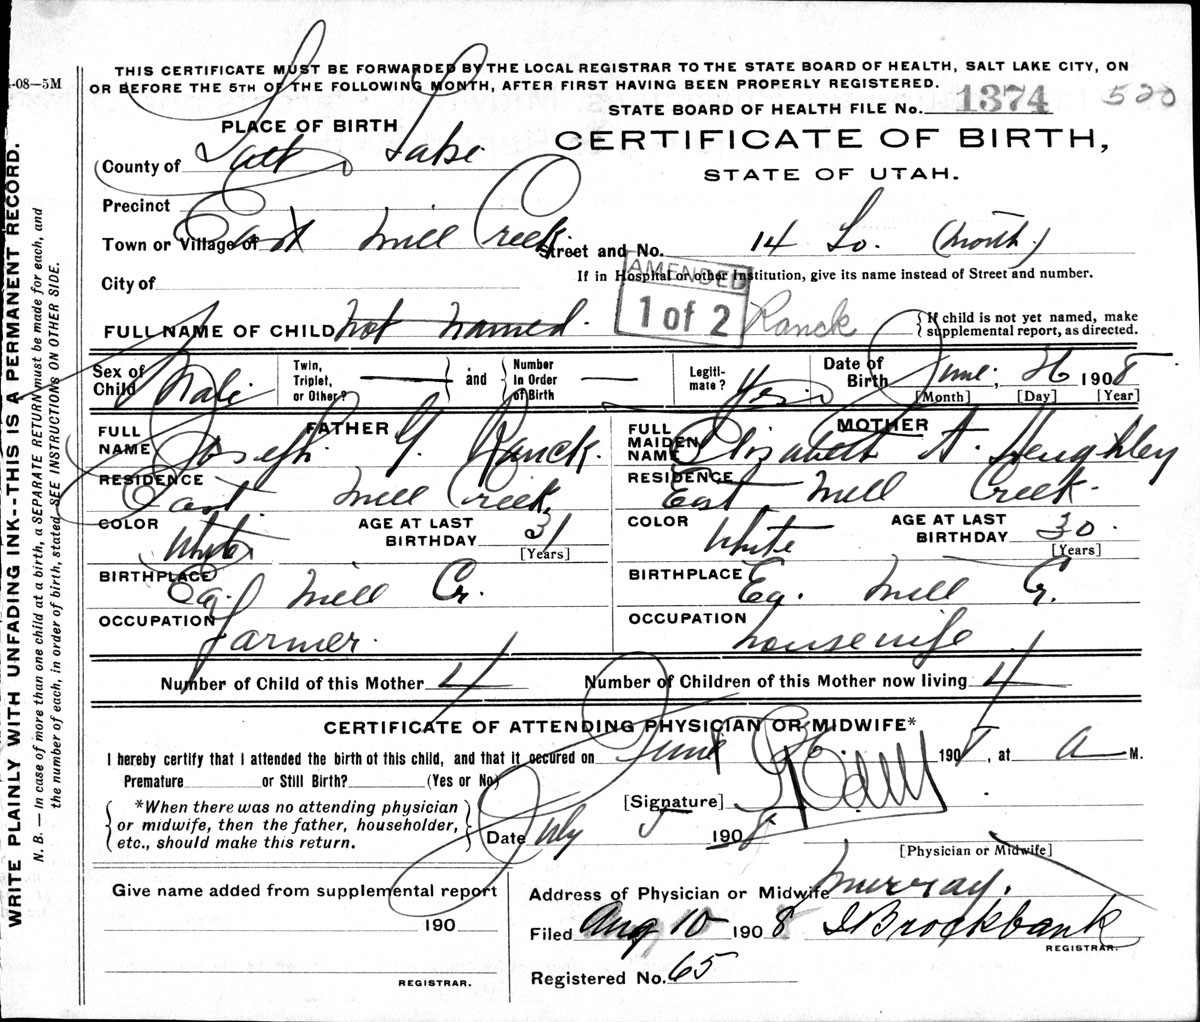 -08—5M
THIS CERTIFICATE MUST BE FORWARDED BY THE LOCAL REGISTRAR TO THE STATE BOARD OF HEALTH, SALT LAKE CITY, ON
OR BEFORE THE 5TH OF THE FOLLOWING MONTH, AFTER FIRST HAVING BEEN PROPERLY REGISTERED.
STATE BOARD OF HEALTH FILE No. 1374 520
PLACE OF BIRTH
CERTIFICATE OF BIRTH,
STATE OF UTAH.
County of Salt Lake
Precinct
Town or Village of East Mill Creek Street and No. 14 So. (North)
City of
If in Hospital or other Institution, give its name instead of Street and number.
AMENDED
1 of 2
FULL NAME OF CHILD Not Named. Ranck
If child is not yet named, make
supplemental report, as directed.
Sex of Child Male
Twin, Triplet, or Other? and Number In Order of Birth
Legitimate? Yes
Date of Birth June 26 1908
[Month] [Day] [Year]
FATHER
FULL NAME Joseph Y. Ranck.
RESIDENCE East Mill Creek.
COLOR White AGE AT LAST BIRTHDAY 31 [Years]
BIRTHPLACE Ea. Mill Cr.
OCCUPATION Farmer.
MOTHER
FULL MAIDEN NAME Elizabeth A. Heughley
RESIDENCE East Mill Creek.
COLOR White AGE AT LAST BIRTHDAY 30. [Years]
BIRTHPLACE Ea. Mill Cr.
OCCUPATION housewife
Number of Child of this Mother 4 Number of Children of this Mother now living 4
CERTIFICATE OF ATTENDING PHYSICIAN OR MIDWIFE*
I hereby certify that I attended the birth of this child, and that it occured on June 26, 1908, at A M.
Premature or Still Birth? (Yes or No)
*When there was no attending physician
or midwife, then the father, householder,
etc., should make this return.
[Signature]
Date July 5 1908
[Physician or Midwife]
Give name added from supplemental report
190
REGISTRAR.
Address of Physician or Midwife Murray.
Filed Aug 10 1908 Brockbank
REGISTRAR.
Registered No. 65
WRITE PLAINLY WITH UNFADING INK--THIS IS A PERMANENT RECORD.
N. B. — In case of more than one child at a birth, a SEPARATE RETURN must be made for each, and
the number of each, in order of birth, stated. SEE INSTRUCTIONS ON OTHER SIDE.